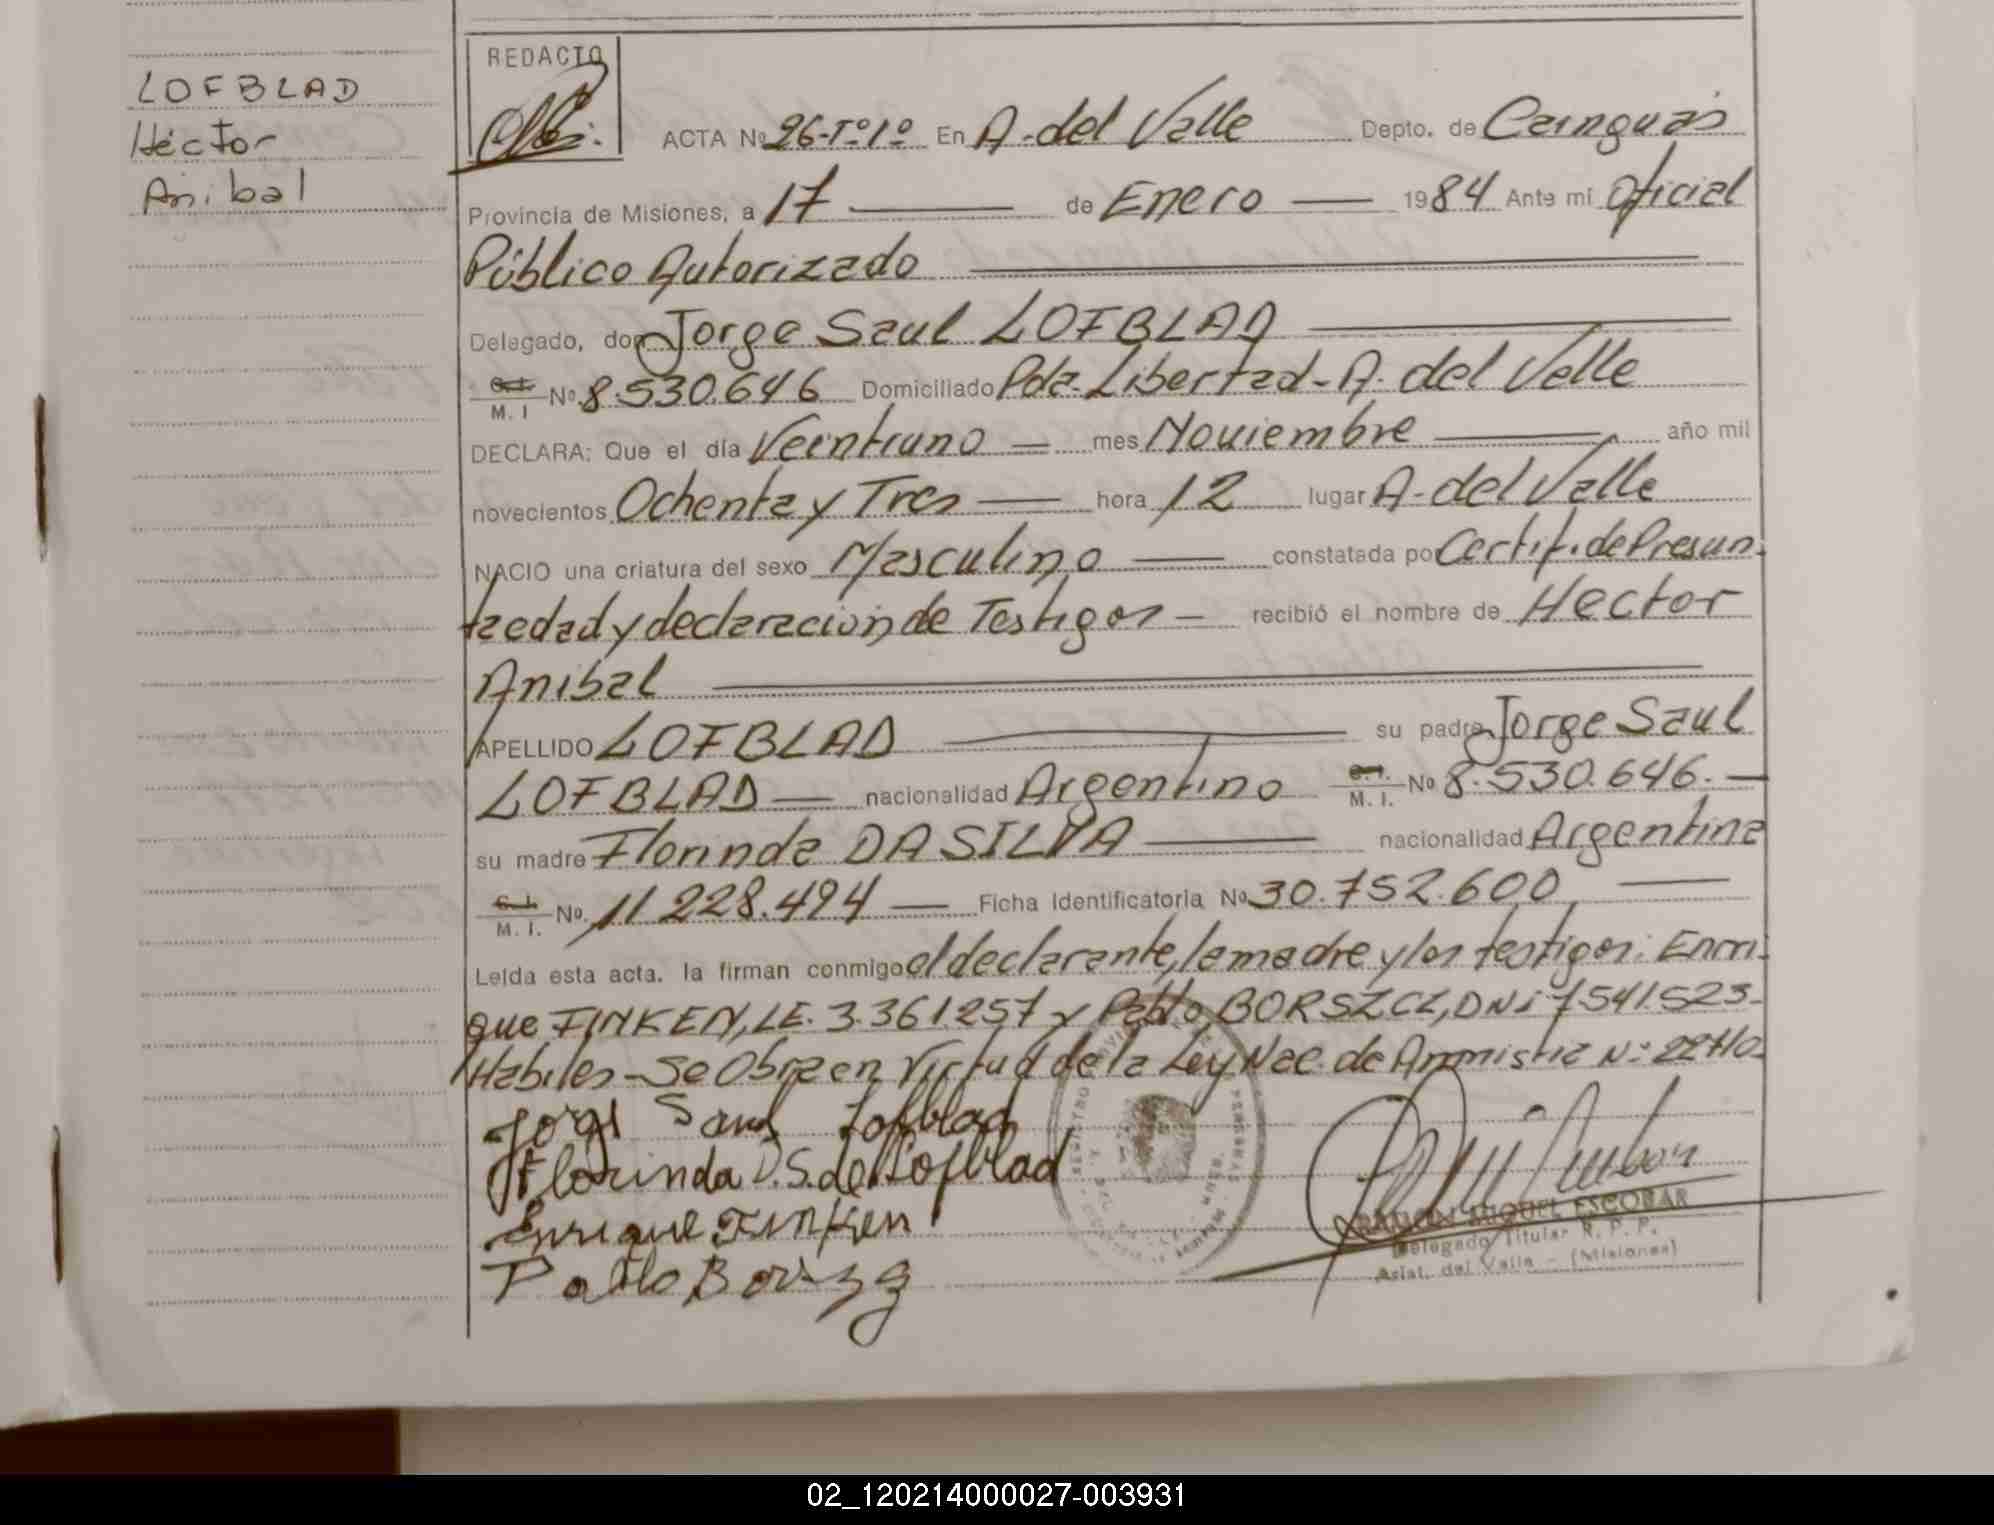 LOFBLAD
Héctor
Anibal
REDACTO
ACTA Nº 26-Tº1º En A. del Valle Depto. de Cainguás
Provincia de Misiones, a 17 de Enero 1984 Ante mí Oficial
Público Autorizado
Delegado, don Jorge Saul LOFBLAD
C.I. M. I Nº 8.530.646 Domiciliado Pda. Libertad - A. del Valle
DECLARA: Que el día Veintiuno mes Noviembre año mil
novecientos Ochenta y Tres hora 12 lugar A. del Valle
NACIO una criatura del sexo Masculino constatada por Certif. de Presun-
ta edad y declaración de Testigos recibió el nombre de Hector
Anibal
APELLIDO LOFBLAD su padre Jorge Saul
LOFBLAD nacionalidad Argentino C.I. M. I. Nº 8.530.646.
su madre Florinda DA SILVA nacionalidad Argentina
C.I. M. I. Nº. 11.228.494 Ficha Identificatoria Nº 30.752.600
Leída esta acta. la firman conmigo el declarante, la madre y los testigos: Enri-
que FINKEN, LE. 3.361.257 y Pablo BORSZCZ, DNi 7.541.523-
Habiles - Se Obra en Virtud de la Ley Nac. de Amnistia Nº 22410
Jorge Saul Lofblad
Florinda D.S. de Lofblad
Enrique FINKen
Pablo
RAMON MIGUEL ESCOBAR
Delegado Titular R. P. P.
Arist. del Valle - (Misiones)
02_120214000027-003931